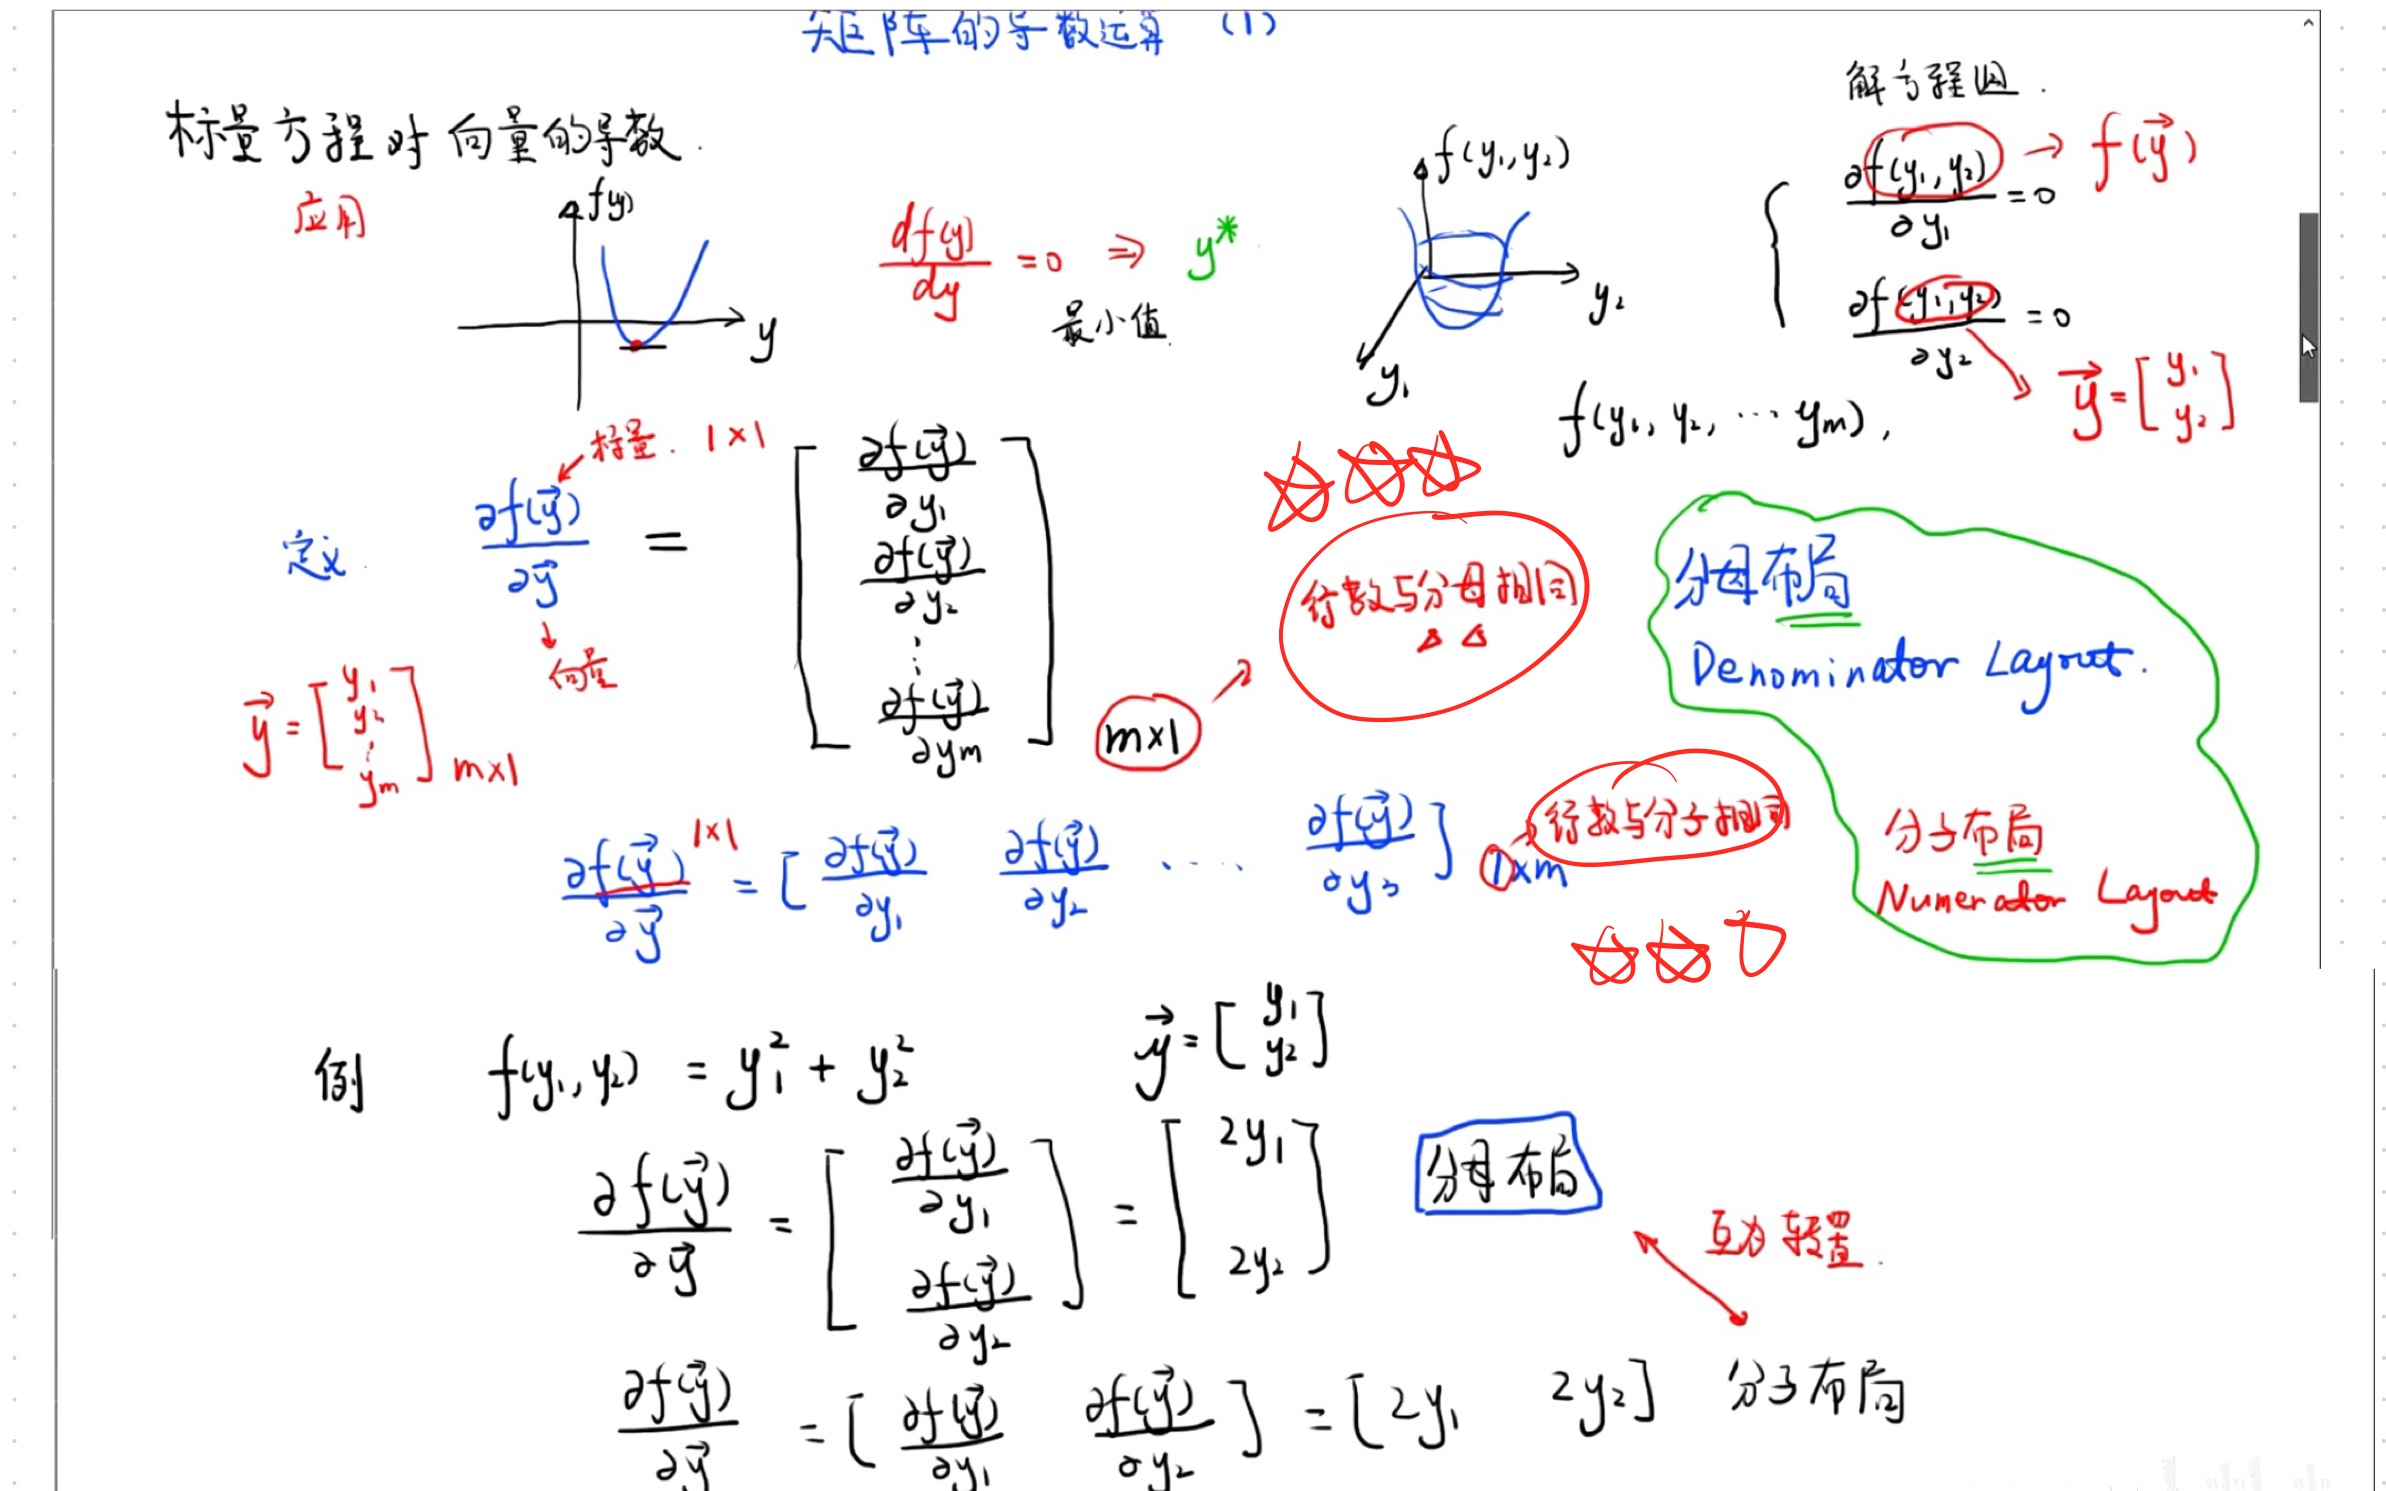 矩阵的导数运算 (1)
标量方程对向量的导数.
应用
f(y)
y
df(y)/dy = 0 ⇒ y*
最小值.
f(y₁,y₂)
y₂
y₁
解方程组.
∂f(y₁,y₂)/∂y₁ = 0 → f(y⃗)
∂f(y₁,y₂)/∂y₂ = 0
y⃗ = [y₁ y₂]
f(y₁, y₂, ⋯ yₘ),
标量. 1×1
定义.
∂f(y⃗)/∂y⃗ = [∂f(y⃗)/∂y₁ ∂f(y⃗)/∂y₂ ⋮ ∂f(y⃗)/∂yₘ] m×1
向量
y⃗ = [y₁ y₂ ⋮ yₘ] m×1
行数与分母相同
分母布局
Denominator Layout.
∂f(y⃗)/∂y⃗ 1×1 = [∂f(y⃗)/∂y₁ ∂f(y⃗)/∂y₂ ⋯⋯ ∂f(y⃗)/∂y₃] 1×m
行数与分子相同
分子布局
Numerator Layout
例 f(y₁,y₂) = y₁² + y₂² y⃗ = [y₁ y₂]
∂f(y⃗)/∂y⃗ = [∂f(y⃗)/∂y₁ ∂f(y⃗)/∂y₂] = [2y₁ 2y₂] 分母布局
互为转置.
∂f(y⃗)/∂y⃗ = [∂f(y⃗)/∂y₁ ∂f(y⃗)/∂y₂] = [2y₁ 2y₂] 分子布局